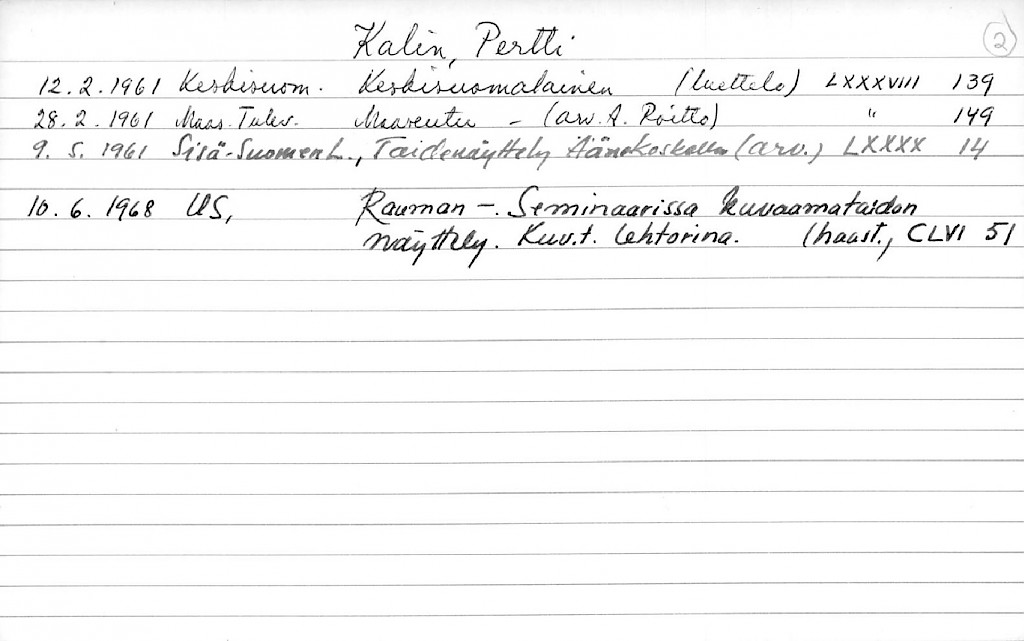 Kalin, Pertti 2
12.2.1961 Keskisuom. Keskisuomalainen (luettelo) LXXXVIII 139
28.2.1961 Maas. Tulev. Maaseutu - (arv. A. Roitto) " 149
9.5.1961 Sisä-Suomen L., Taidenäyttely Äänekoskella (arv.) LXXXX 14
10.6.1968 US, Rauman -. Seminaarissa kuvaamataidon
näyttely. Kuv.t. lehtorina. (haast., CLVI 51